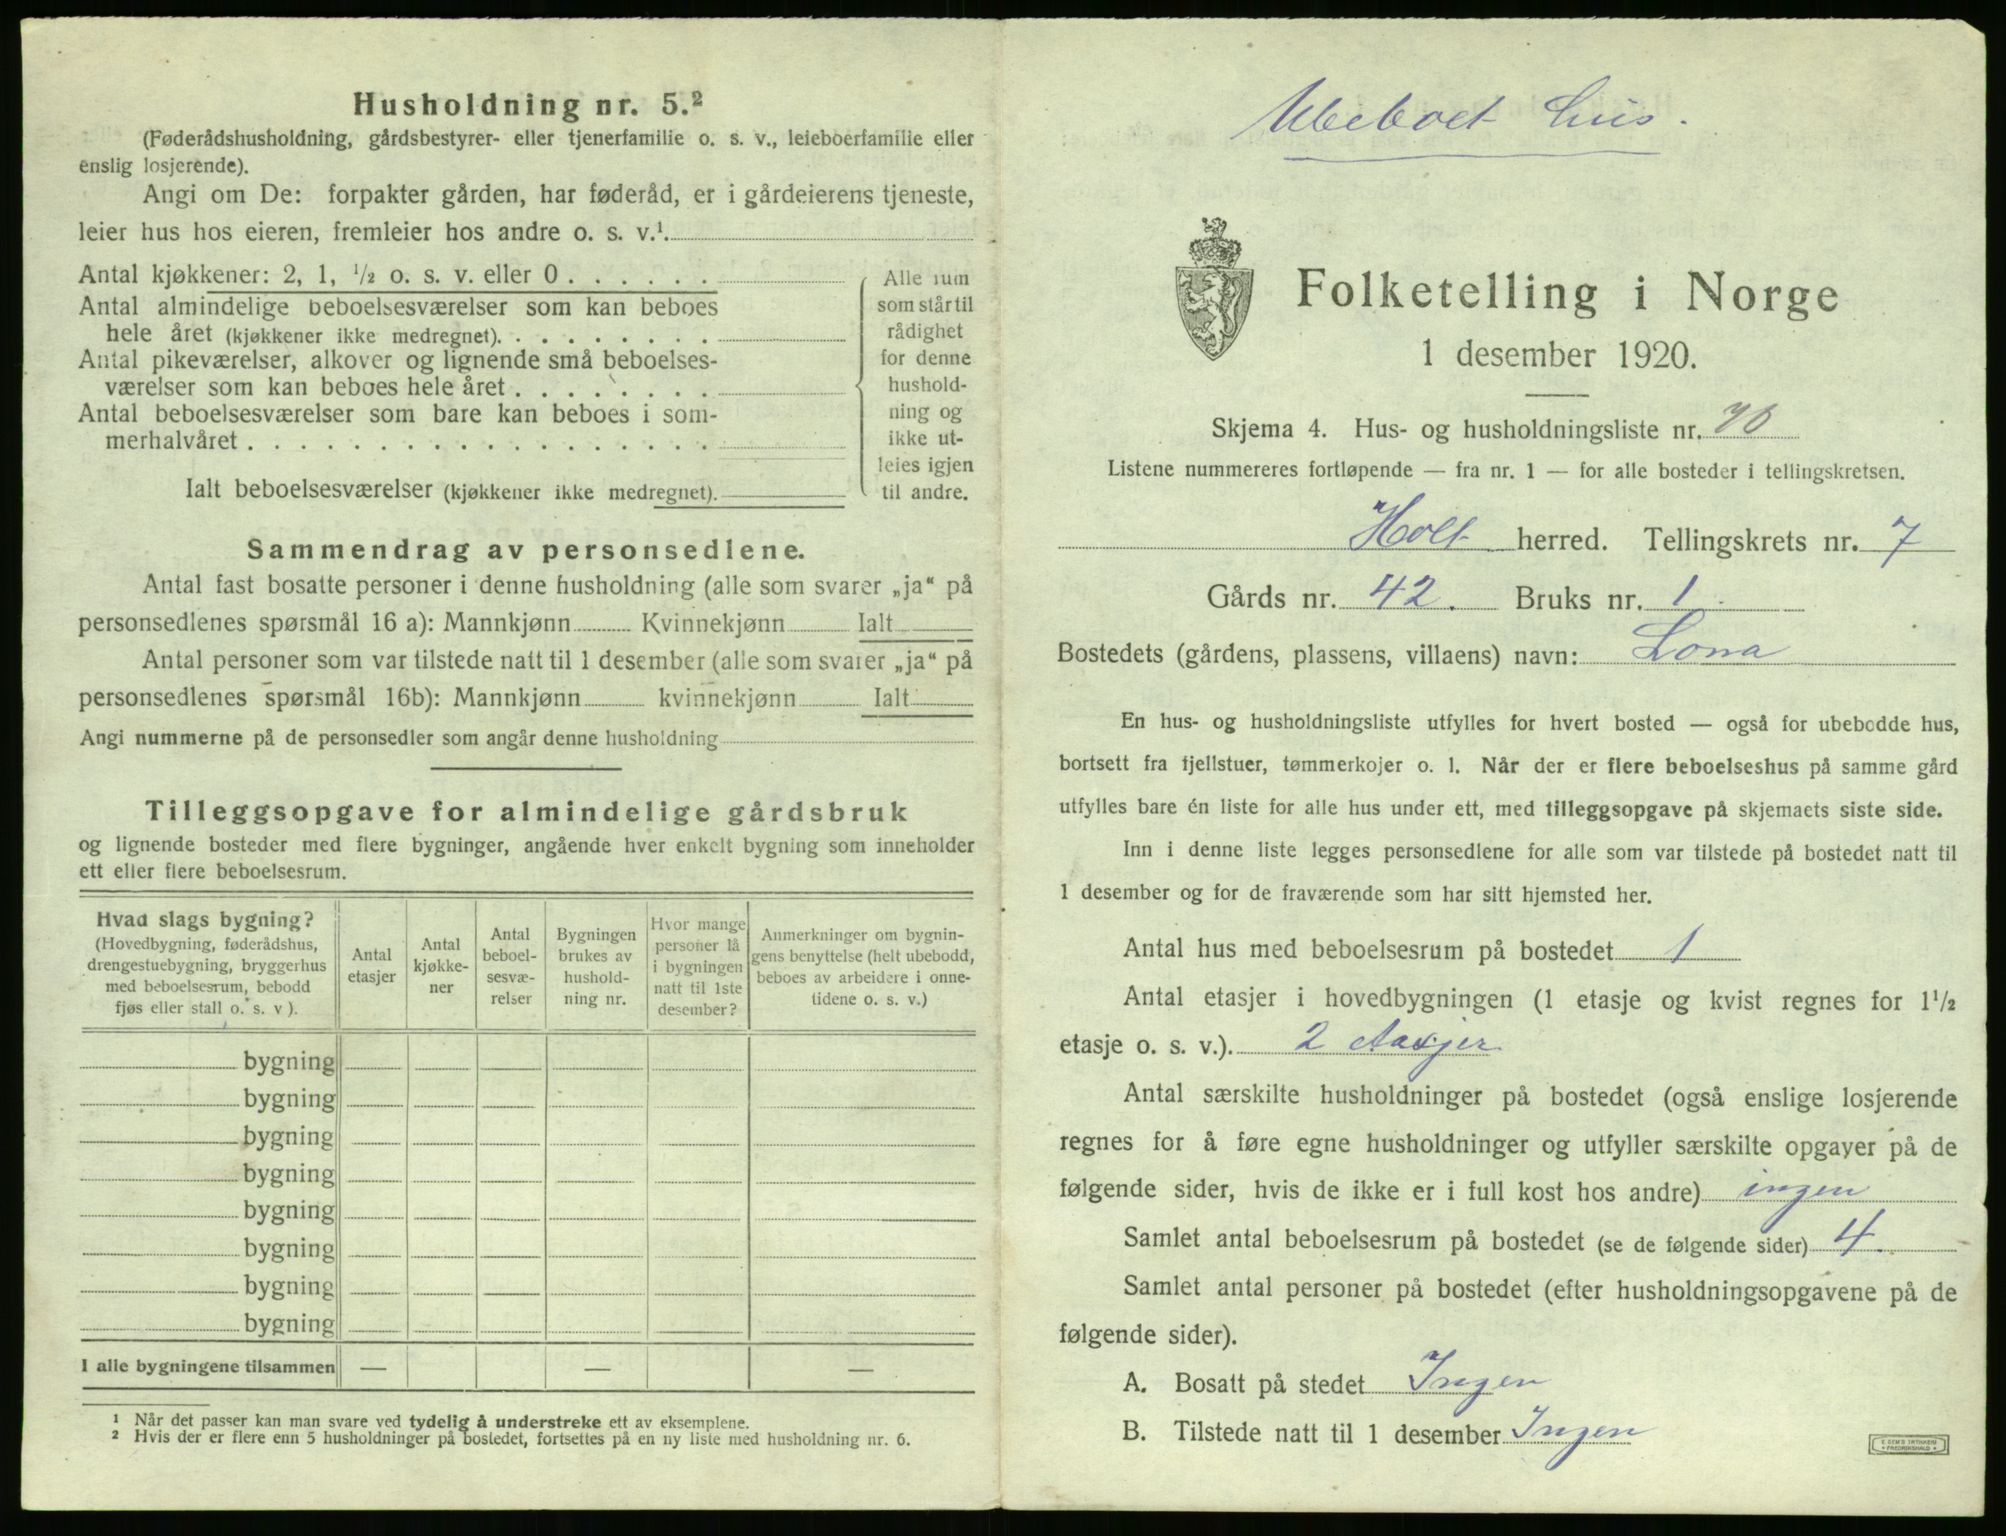 Husholdning nr. 5.²
(Føderådshusholdning, gårdsbestyrer- eller tjenerfamilie o. s. v., leieboerfamilie eller
enslig losjerende).
Angi om De: forpakter gården, har føderåd, er i gårdeierens tjeneste,
leier hus hos eieren, fremleier hos andre o. s. v.¹.
Antal kjøkkener: 2, 1, ½ o. s. v. eller 0 . . . . . .
Antal almindelige beboelsesværelser som kan beboes
hele året (kjøkkener ikke medregnet). . . . . . . . .
Antal pikeværelser, alkover og lignende små beboelses-
værelser som kan beboes hele året . . . . . . . .
Antal beboelsesværelser som bare kan beboes i som-
merhalvåret . . . . . . . . . . . . . . . . . .
Ialt beboelsesværelser (kjøkkener ikke medregnet).
Alle rum
som står til
rådighet
for denne
hushold-
ning og
ikke ut-
leies igjen
til andre.
Sammendrag av personsedlene.
Antal fast bosatte personer i denne husholdning (alle som svarer „ja“ på
personsedlenes spørsmål 16 a): Mannkjønn Kvinnekjønn Ialt
Antal personer som var tilstede natt til 1 desember (alle som svarer „ja“ på
personsedlenes spørsmål 16b): Mannkjønn kvinnekjønn Ialt
Angi nummerne på de personsedler som angår denne husholdning
Tilleggsopgave for almindelige gårdsbruk
og lignende bosteder med flere bygninger, angående hver enkelt bygning som inneholder
ett eller flere beboelsesrum.
Hvad slags bygning?
(Hovedbygning, føderådshus,
drengestuebygning, bryggerhus
med beboelsesrum, bebodd
fjøs eller stall o. s. v ).
Antal
etasjer
Antal
kjøkke-
ner
Antal
beboel-
sesvæ-
relser
Bygningen
brukes av
hushold-
ning nr.
Hvor mange
personer lå
i bygningen
natt til 1ste
desember?
Anmerkninger om bygnin-
gens benyttelse (helt ubebodd,
beboes av arbeidere i onne-
tidene o. s. v.)
bygning
bygning
bygning
bygning
bygning
bygning
bygning
bygning
I alle bygningene tilsammen — — —
¹ Når det passer kan man svare ved tydelig å understreke ett av eksemplene.
² Hvis der er flere enn 5 husholdninger på bostedet, fortsettes på en ny liste med husholdning nr. 6.
Ubeboet hus.
Folketelling i Norge
1 desember 1920.
Skjema 4. Hus- og husholdningsliste nr. 70
Listene nummereres fortløpende — fra nr. 1 — for alle bosteder i tellingskretsen.
Holt herred. Tellingskrets nr. 7
Gårds nr. 42. Bruks nr. 1.
Bostedets (gårdens, plassens, villaens) navn: Lona
En hus- og husholdningsliste utfylles for hvert bosted — også for ubebodde hus,
bortsett fra fjellstuer, tømmerkojer o. l. Når der er flere beboelseshus på samme gård
utfylles bare én liste for alle hus under ett, med tilleggsopgave på skjemaets siste side.
Inn i denne liste legges personsedlene for alle som var tilstede på bostedet natt til
1 desember og for de fraværende som har sitt hjemsted her.
Antal hus med beboelsesrum på bostedet 1
Antal etasjer i hovedbygningen (1 etasje og kvist regnes for 1½
etasje o. s. v.). 2 Aasjer
Antal særskilte husholdninger på bostedet (også enslige losjerende
regnes for å føre egne husholdninger og utfyller særskilte opgaver på de
følgende sider, hvis de ikke er i full kost hos andre) ingen
Samlet antal beboelsesrum på bostedet (se de følgende sider) 4.
Samlet antal personer på bostedet (efter husholdningsopgavene på de
følgende sider).
A. Bosatt på stedet Ingen
B. Tilstede natt til 1 desember Ingen
E SEM'S TRYKKERI
FREDRIKSHALD